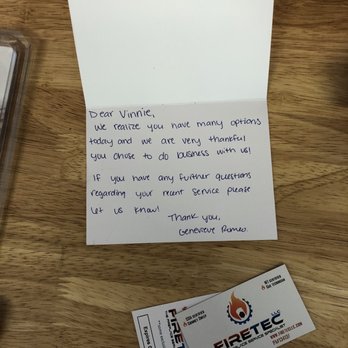 Dear Vinnie,
We realize you have many options
today and we are very thankful
you chose to do business with us!
If you have any further questions
regarding your recent service please
let us know!
Thank you,
Genevieve Romeo
FIRETEC
LLC
FIRE